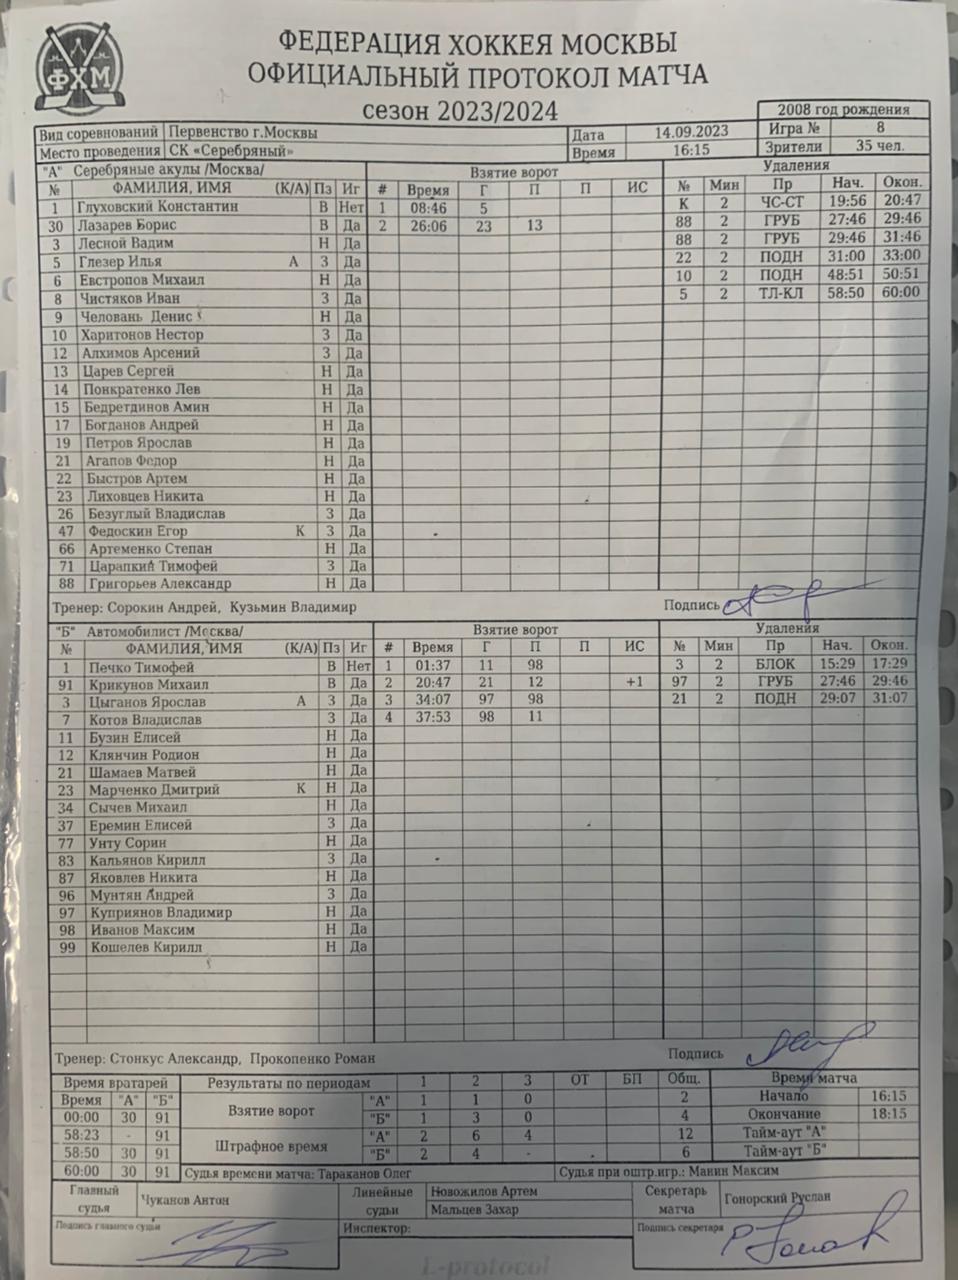 ФХМ
ФЕДЕРАЦИЯ ХОККЕЯ МОСКВЫ
ОФИЦИАЛЬНЫЙ ПРОТОКОЛ МАТЧА
сезон 2023/2024
2008 год рождения
Вид соревнований Первенство г.Москвы Дата 14.09.2023 Игра № 8
Место проведения СК «Серебряный» Время 16:15 Зрители 35 чел.
"А" Серебряные акулы /Москва/ Взятие ворот Удаления
№ ФАМИЛИЯ, ИМЯ (К/А) Пз Иг # Время Г П П ИС № Мин Пр Нач. Окон.
1 Глуховский Константин В Нет 1 08:46 5 К 2 ЧС-СТ 19:56 20:47
30 Лазарев Борис В Да 2 26:06 23 13 88 2 ГРУБ 27:46 29:46
3 Лесной Вадим Н Да 88 2 ГРУБ 29:46 31:46
5 Глезер Илья А З Да 22 2 ПОДН 31:00 33:00
6 Евстропов Михаил Н Да 10 2 ПОДН 48:51 50:51
8 Чистяков Иван З Да 5 2 ТЛ-КЛ 58:50 60:00
9 Человань Денис Н Да
10 Харитонов Нестор З Да
12 Алхимов Арсений З Да
13 Царев Сергей Н Да
14 Понкратенко Лев Н Да
15 Бедретдинов Амин Н Да
17 Богданов Андрей Н Да
19 Петров Ярослав Н Да
21 Агапов Федор Н Да
22 Быстров Артем Н Да
23 Лиховцев Никита Н Да
26 Безуглый Владислав З Да
47 Федоскин Егор К З Да
66 Артеменко Степан Н Да
71 Царапкин Тимофей З Да
88 Григорьев Александр Н Да
Тренер: Сорокин Андрей, Кузьмин Владимир Подпись
"Б" Автомобилист /Москва/ Взятие ворот Удаления
№ ФАМИЛИЯ, ИМЯ (К/А) Пз Иг # Время Г П П ИС № Мин Пр Нач. Окон.
1 Печко Тимофей В Нет 1 01:37 11 98 3 2 БЛОК 15:29 17:29
91 Крикунов Михаил В Да 2 20:47 21 12 +1 97 2 ГРУБ 27:46 29:46
3 Цыганов Ярослав А З Да 3 34:07 97 98 21 2 ПОДН 29:07 31:07
7 Котов Владислав З Да 4 37:53 98 11
11 Бузин Елисей Н Да
12 Клянчин Родион Н Да
21 Шамаев Матвей Н Да
23 Марченко Дмитрий К Н Да
34 Сычев Михаил Н Да
37 Еремин Елисей З Да
77 Унту Сорин Н Да
83 Кальянов Кирилл З Да
87 Яковлев Никита Н Да
96 Мунтян Андрей З Да
97 Куприянов Владимир Н Да
98 Иванов Максим Н Да
99 Кошелев Кирилл Н Да
Тренер: Стонкус Александр, Прокопенко Роман Подпись
Время вратарей Результаты по периодам 1 2 3 ОТ БП Общ. Время матча
Время "А" "Б" Взятие ворот "А" 1 1 0 2 Начало 16:15
00:00 30 91 "Б" 1 3 0 4 Окончание 18:15
58:23 - 91 Штрафное время "А" 2 6 4 12 Тайм-аут "А"
58:50 30 91 "Б" 2 4 - . 6 Тайм-аут "Б"
60:00 30 91 Судья времени матча: Тараканов Олег Судья при оштр.игр.: Манин Максим
Главный судья Чуканов Антон Линейные судьи Новожилов Артем Секретарь матча Гонорский Руслан
Мальцев Захар
Подпись главного судьи Инспектор: Подпись секретаря
L-protocol